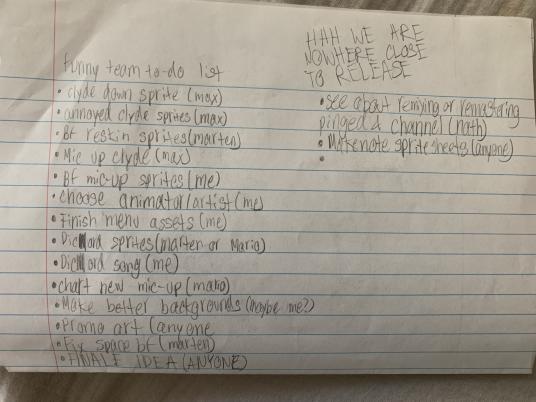 funny team to-do list
• clyde down sprite (max)
• annoyed clyde sprites (max)
• Bf reskin sprites (marten)
• Mic up clyde (max)
• Bf mic-up sprites (me)
• choose animator/artist (me
• Finish menu assets (me)
• sprites (marten or Mario)
• song (me)
• chart new mic-up (mario)
• Make better backgrounds (maybe me?)
• Promo art (anyone
• Fix space bf (marten)
• FINALE IDEA (ANYONE)
HAH WE ARE
NOWHERE CLOSE
TO RELEASE
• see about remixing or remastering
pinged & channel (nath)
• Make note spritesheets (anyone)
•